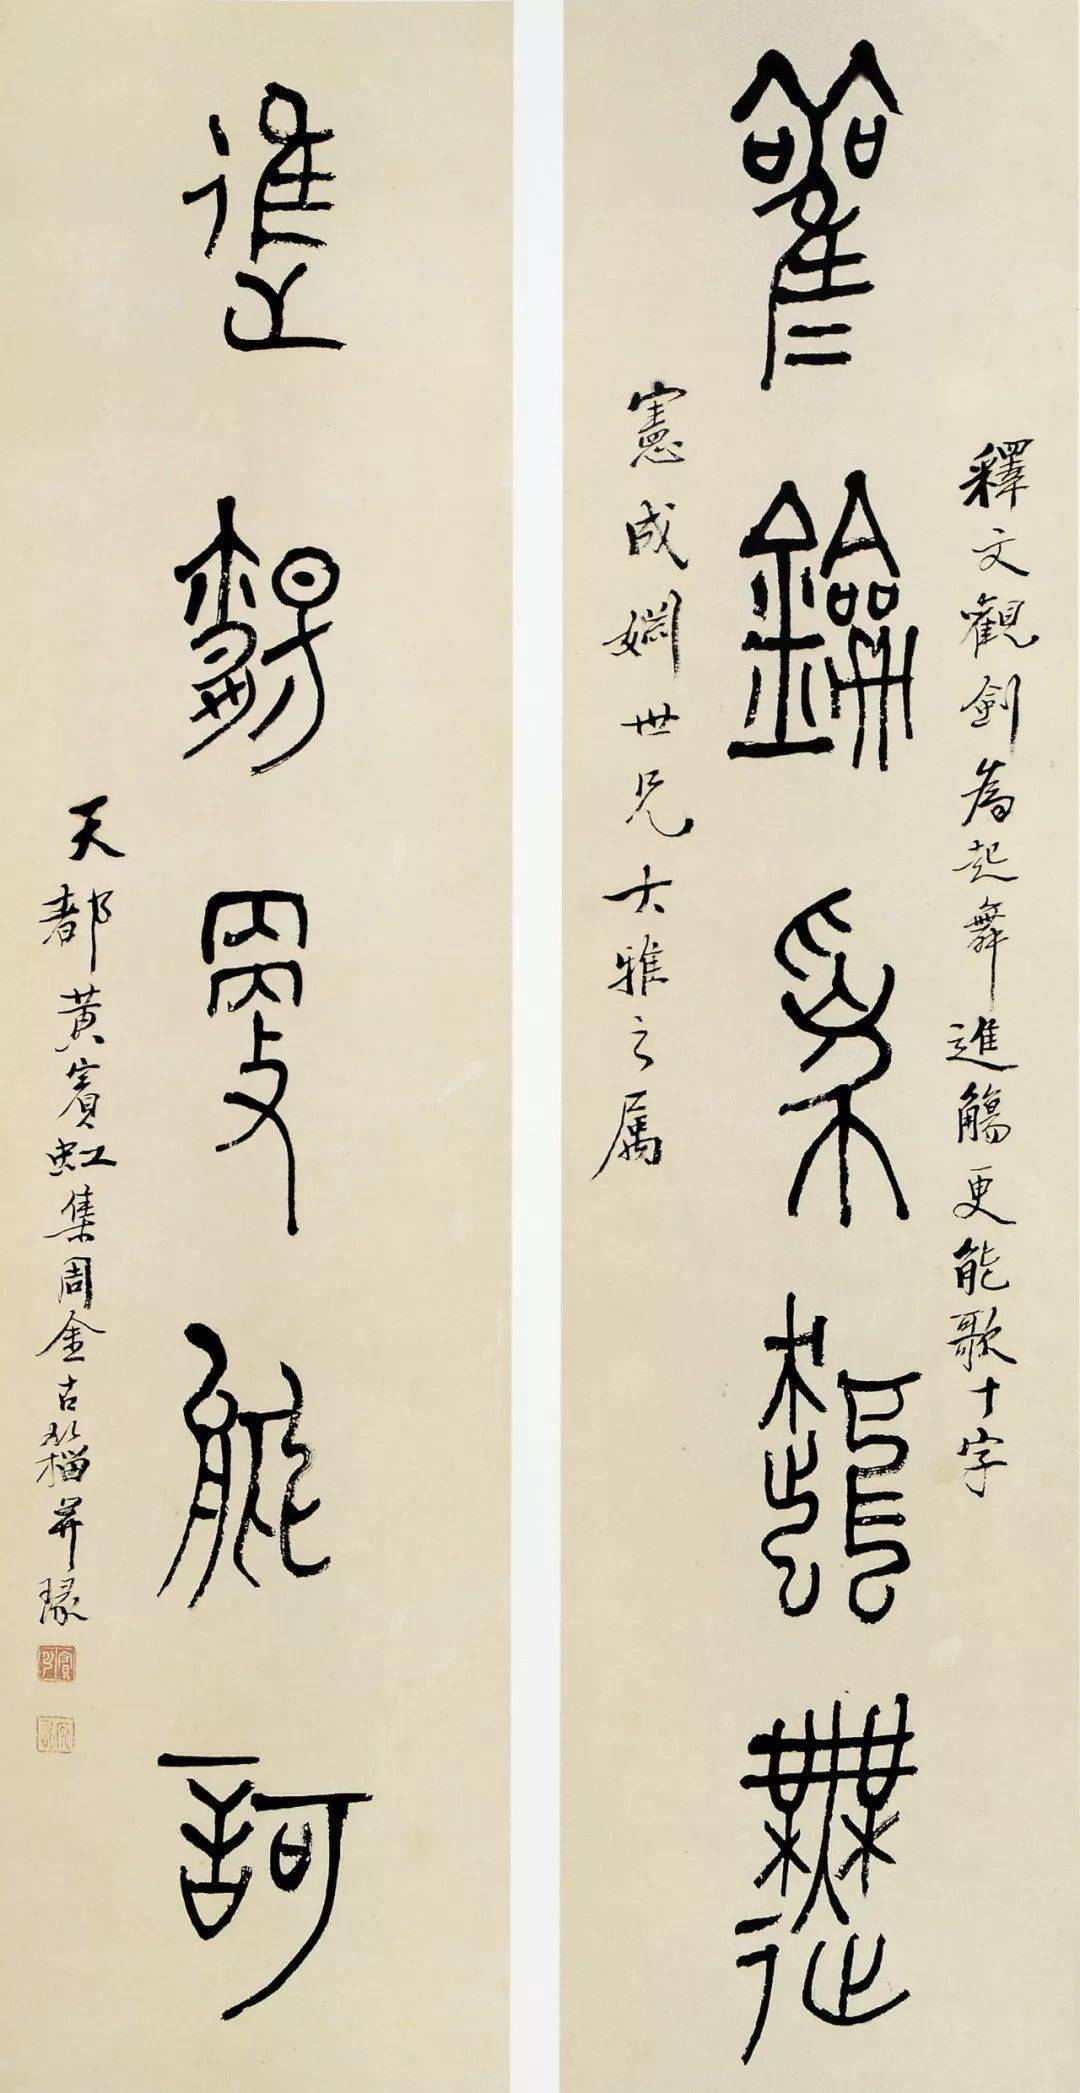 觀劍為起舞
釋文觀劍為起舞進觴更能歌十字
憲成姻世兄大雅之屬
進觴更能歌
天都黃賓虹集周金古籀并琢